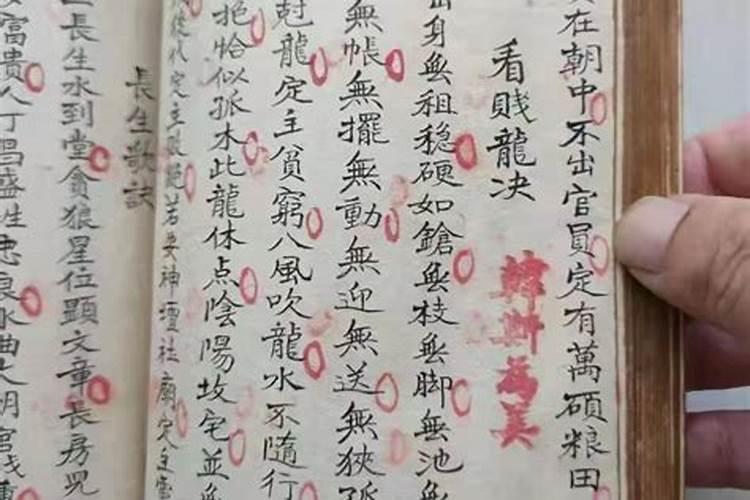 在朝中不出官員定有萬碩粮田
看賤龍决
韓斯為美
出身無祖穏硬如鎗無枝無脚無池無
無帳無擺無動無迎無送無狹孤
龍定主貧窮八風吹龍水不隨行
抱恰似孤木此龍休点陰陽故宅並無
代定主 絕若要神壇社廟定主
長生歌訣
長生水到堂貪狼星位顯文章長房
富貴人丁昌盛性忠良水曲大明宮